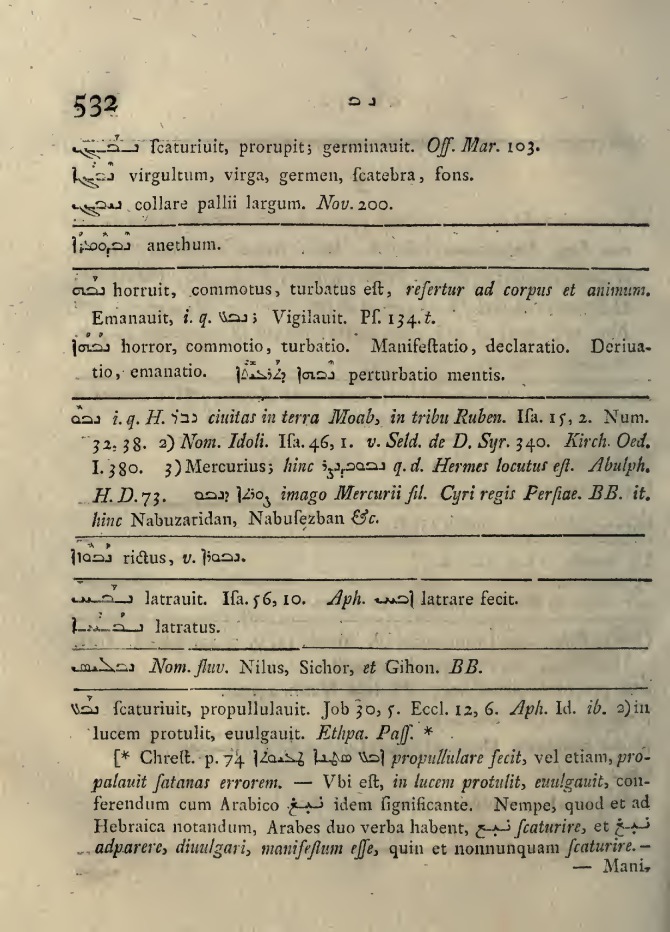 532 נ ב
ܢܒܓ ſcaturiuit, prorupit; germinauit. Off. Mar. 103.
ܢܒܓܐ virgultum, virga, germen, ſcatebra, fons.
collare pallii largum. Nov. 200.
anethum.
ܢܒܗ horruit, commotus, turbatus eſt, refertur ad corpus et animum.
Emanauit, i. q. ܢܒܥ; Vigilauit. Pſ. 134. t.
ܢܒܗܐ horror, commotio, turbatio. Manifeſtatio, declaratio. Deriua-
tio, emanatio. ܢܒܗܐ ܕܬܪܥܝܬܐ perturbatio mentis.
ܢܒܘ i. q. H. נבו ciuitas in terra Moab, in tribu Ruben. Iſa. 15, 2. Num.
32. 38. 2) Nom. Idoli. Iſa. 46, 1. v. Seld. de D. Syr. 340. Kirch. Oed.
I. 380. 3) Mercurius; hinc q. d. Hermes locutus eſt. Abulph.
H. D. 73. imago Mercurii fil. Cyri regis Perſiae. BB. it.
hinc Nabuzaridan, Nabuſezban &c.
rictus, v.
ܢܒܚ latrauit. Iſa. 56, 10. Aph. ܐܒܚ latrare fecit.
ܢܒܚܐ latratus.
Nom. fluv. Nilus, Sichor, et Gihon. BB.
ܢܒܥ ſcaturiuit, propullulauit. Job 30, 5. Eccl. 12, 6. Aph. Id. ib. 2) in
lucem protulit, euulgauit. Ethpa. Paſſ. *
[* Chreſt. p. 74 ܐܒܥ ܣܛܢܐ ܠܛܥܝܘܬܐ propullulare fecit, vel etiam, pro-
palauit ſatanas errorem. — Vbi eſt, in lucem protulit, euulgauit, con-
ferendum cum Arabico نبغ idem ſignificante. Nempe, quod et ad
Hebraica notandum, Arabes duo verba habent, نبع ſcaturire, et نبغ
adparere, diuulgari, manifeſtum eſſe, quin et nonnunquam ſcaturire. —
— Mani-